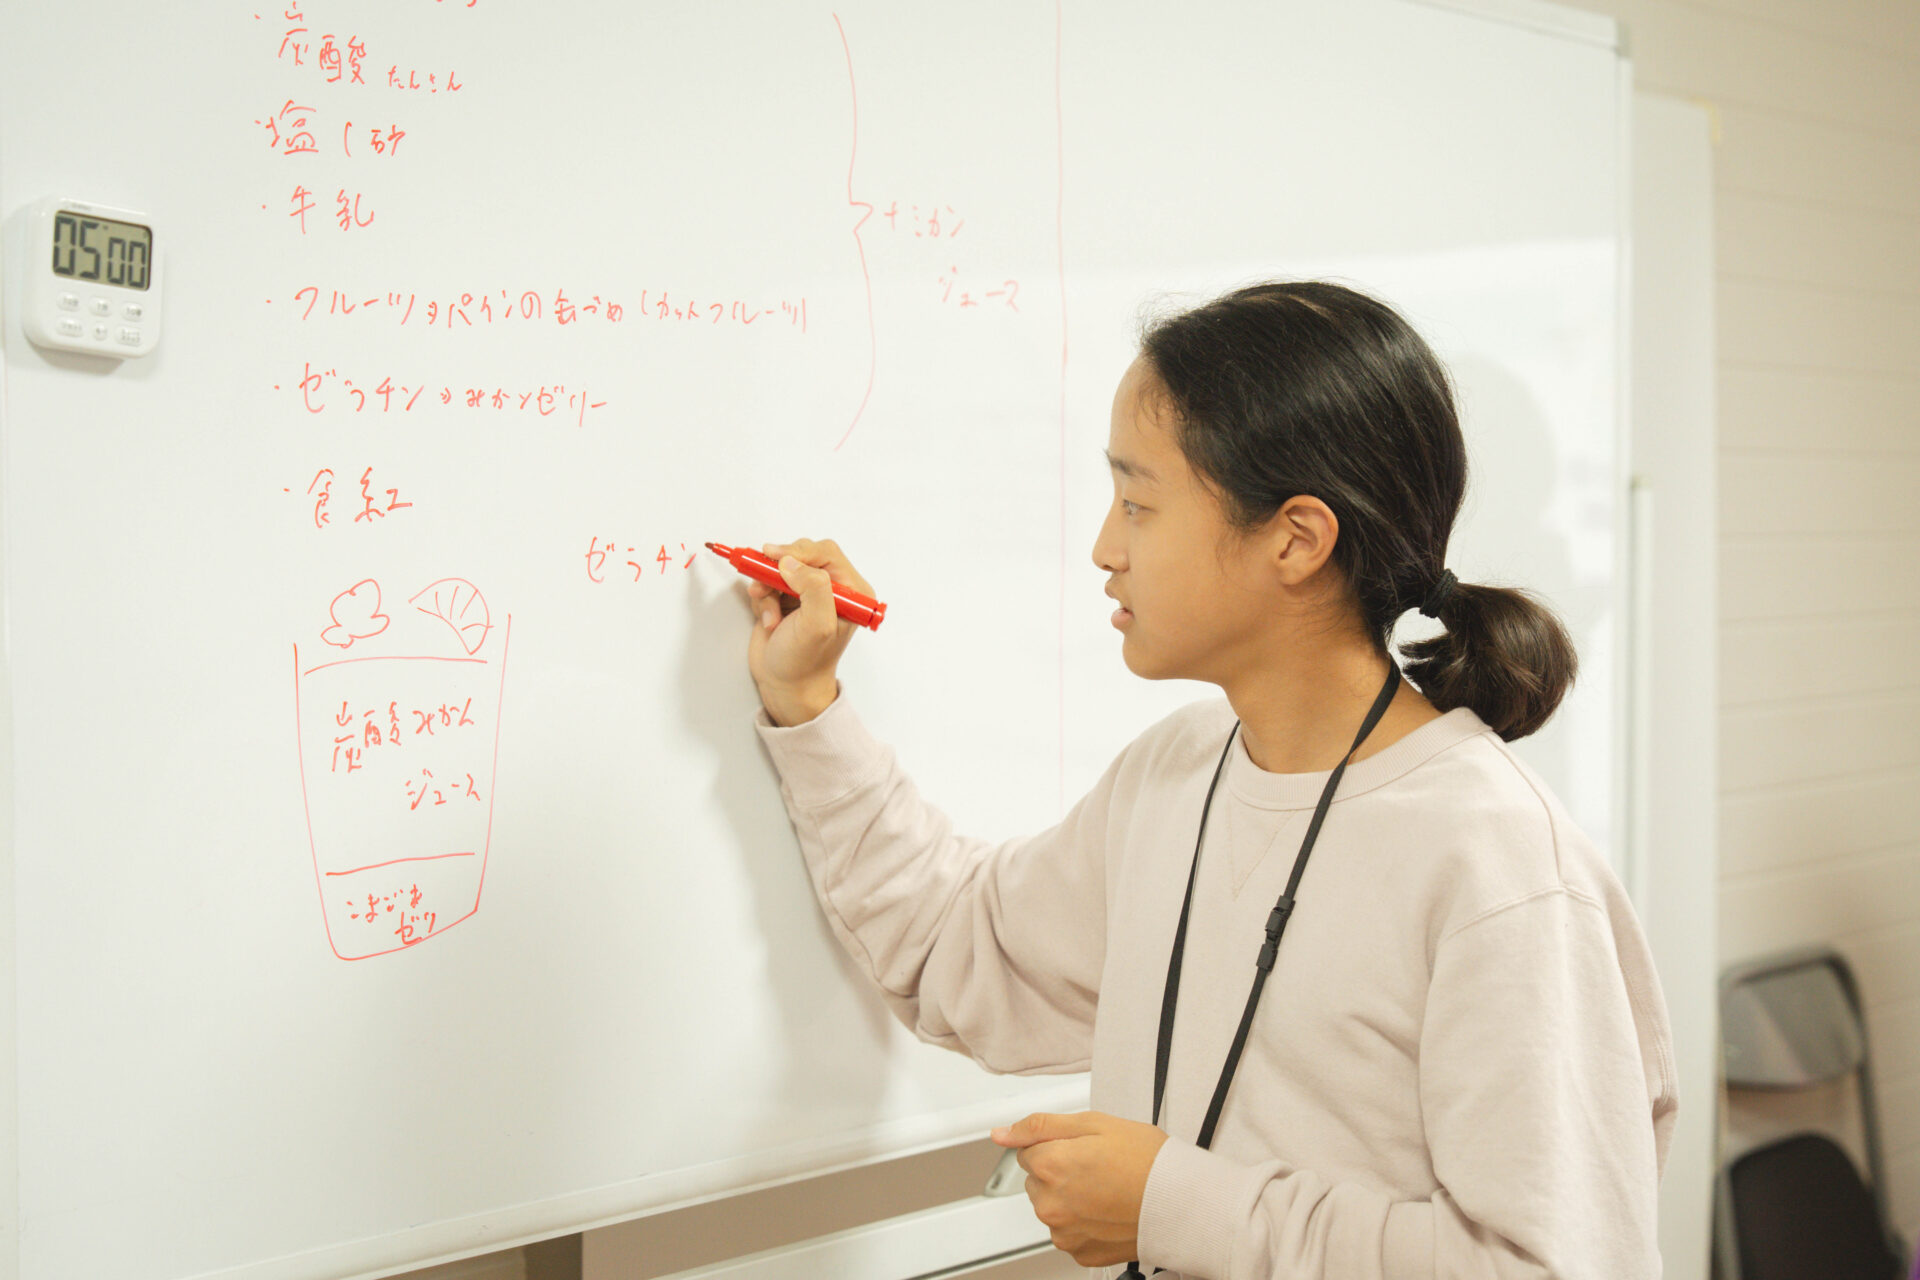 ・炭酸 たんさん
・塩(砂
・牛乳
・フルーツ→パインの缶づめ(カットフルーツ)
・ゼラチン→みかんゼリー
・食紅
+ミカン
ジュース
ゼラチン
炭酸みかん
ジュース
ゼリ
05 00